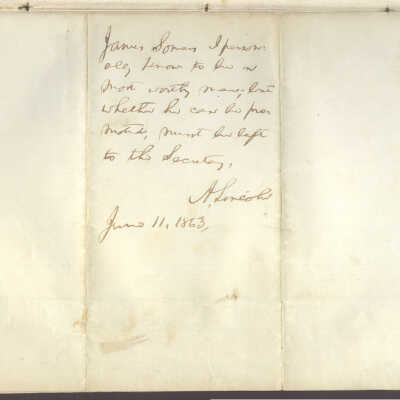 James Somers I person-
ally know to be a
most worthy man; but
whether he can be pro-
moted, must be left
to the Secretary.
A. Lincoln
June 11, 1863.